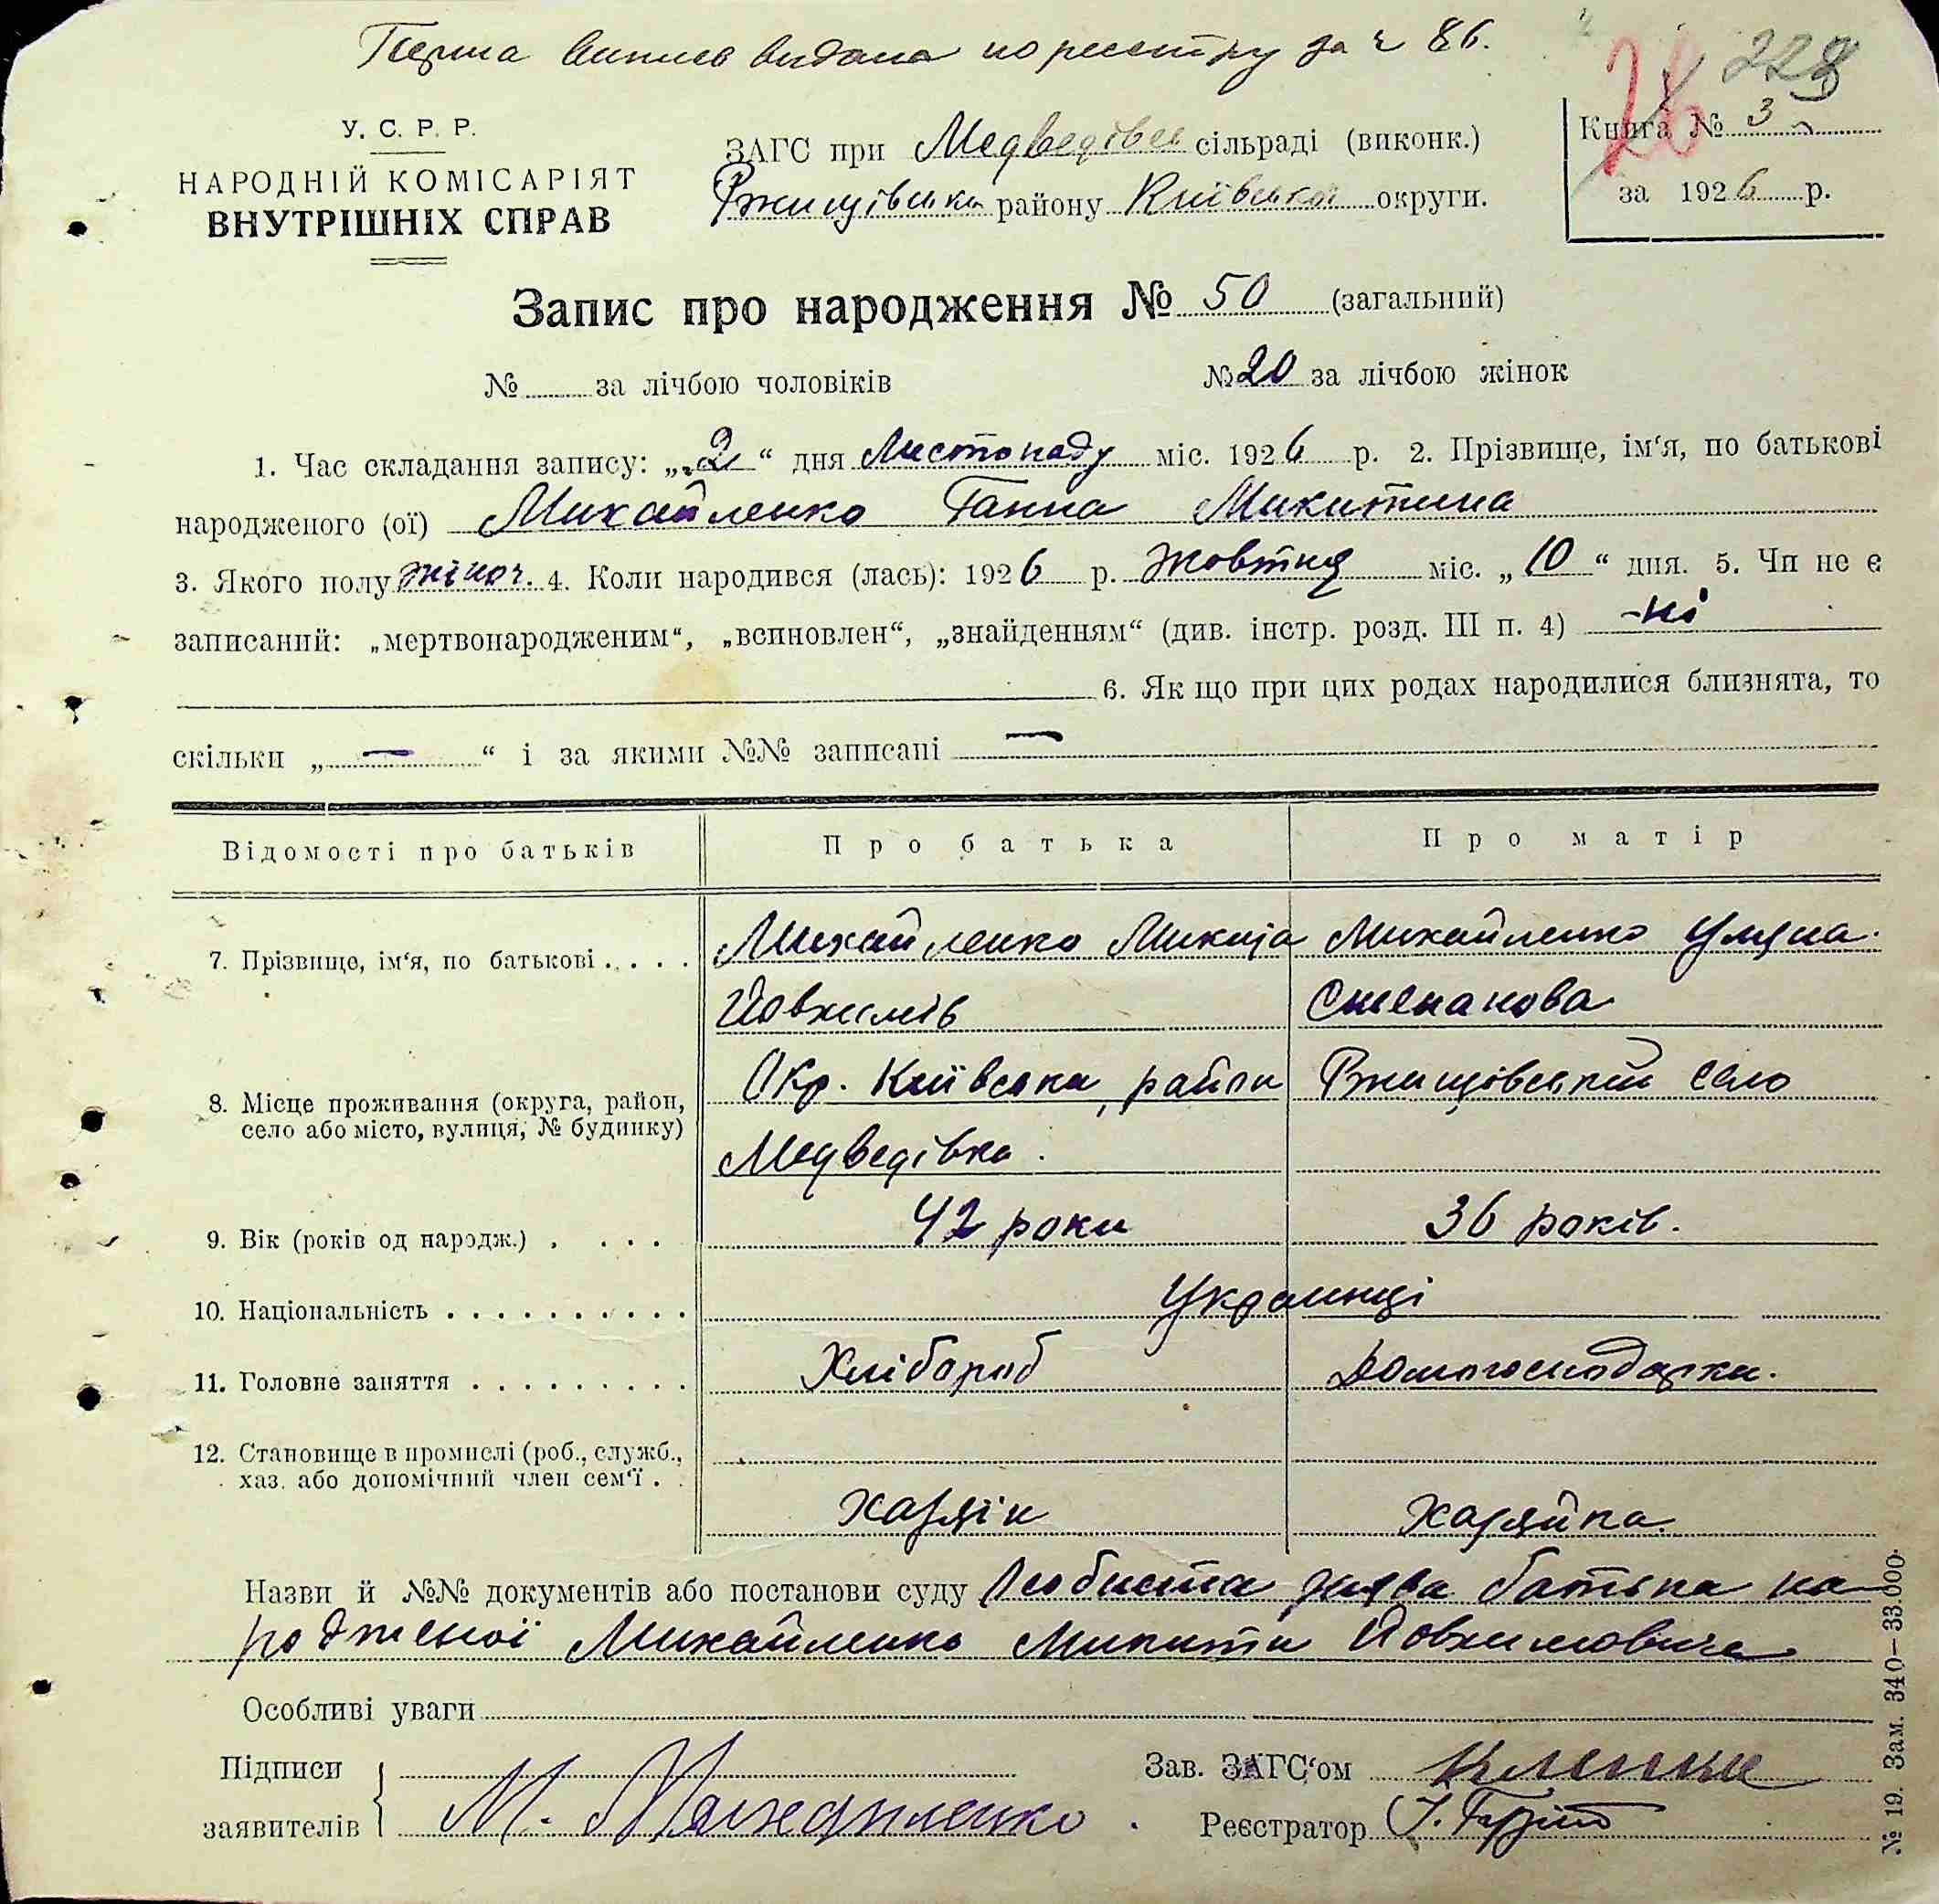 Перша виписв видана по реєстру за № 86.
28 229
У. С. Р. Р.
НАРОДНІЙ КОМІСАРІЯТ
ВНУТРІШНІХ СПРАВ
ЗАГС при Медведівск сільраді (виконк.)
Ржищівська району Київської округи.
Книга № 3
за 1926 р.
Запис про народження № 50 (загальний)
№ за лічбою чоловіків № 20 за лічбою жінок
1. Час складання запису: „2“ дня Листопаду міс. 1926 р. 2. Прізвище, ім‘я, по батькові
народженого (ої) Михайленко Ганна Микитина
3. Якого полу жіноч. 4. Коли народився (лась): 1926 р. Жовтня міс. „10“ дня. 5. Чи не є
записаний: „мертвонародженим“, „всиновлен“, „знайденням“ (див. інстр. розд. III п. 4) -ні
6. Як що при цих родах народилися близнята, то
скільки „ — “ і за якими №№ записані —
Відомості про батьків Про батька Про матір
7. Прізвище, ім‘я, по батькові . . . . Михайленко Микита Михайленко Уляна.
Йовхимів Степанова
8. Місце проживання (округа, район, село або місто, вулиця, № будинку) Окр. Київська, район Ржищівський село
Медведівка.
9. Вік (років од народж.) . . . . 42 роки 36 років.
10. Національність . . . . . . . . . . Українці
11. Головне заняття . . . . . . . . . Хлібороб Домогосподарка.
12. Становище в промислі (роб., служб.,
хаз. або допомічний член сем‘ї . .
хазяїн хазяйка.
Назви й №№ документів або постанови суду Особиста заява батька на
родженої Михайленко Микити Йовхимовича
Особливі уваги
Підписи
заявителів М. Михайленко
Зав. ЗАГС‘ом
Реєстратор
№ 19. Зам. 340—33.000.